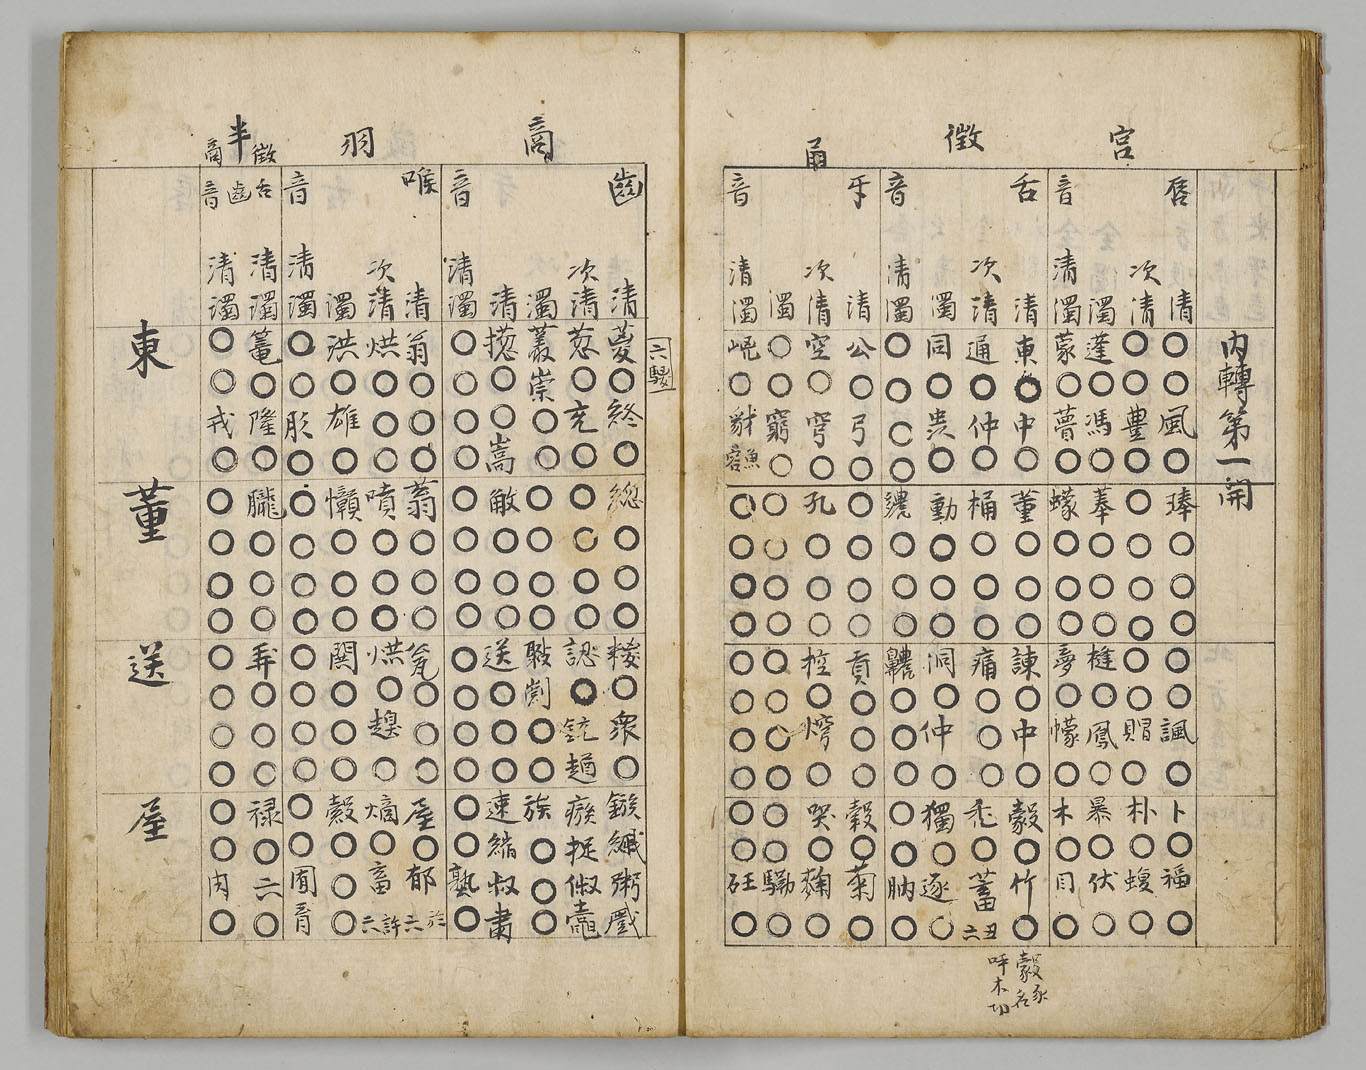 宮 徵 角
内轉第一開
唇 清 ○○風○ 琫○○○ ○○諷○ 卜○福○
次清 ○○豐○ ○○○○ ○○賵○ 朴○蝮○
濁 蓬○馮○ 菶○○○ 槰○鳳○ 暴○伏○
音 清濁 蒙○瞢○ 蠓○○○ 夢○幪○ 木○目○
舌 清 東○中○ 董○○○ 諫○中○ 豰○竹○
次清 通○仲○ 桶○○○ 痛○○○ 禿○蓄丑六
濁 同○䖝○ 動○○○ 洞○仲○ 獨○逐○
音 清濁 ○○○○ 繷○○○ 齈○○○ ○○肭○
牙 清 公○弓○ ○○○○ 貢○○○ 穀○菊○
次清 空○穹○ 孔○○○ 控○焪○ 哭○麴○
濁 ○○窮○ ○○○○ ○○○○ ○○驧○
音 清濁 ○ 魚容 ○○○○ ○○○○ ○○砡○
呼木切
商 羽 半徵商
六騣
齒 清 葼○終○ 総○○○ 粽○衆○ 鏃縬粥蹙
次清 葱○充○ ○○○○ ○銃趥 瘯珿俶鼀
濁 叢崇○○ ○○○○ 剬○○ 族○○○
清 檧○○嵩 ○○○ 送○○○ 速縮叔肅
音 清濁 ○○○○ ○○○○ ○○○○ ○○熟○
喉 清 翁○○○ 蓊○○○ 瓮○○○ 屋○郁於六
次清 烘○○○ 嗊○○○ 烘○趮○ 熇○畜許六
濁 洪○雄○ 懶○○○ 閧○○○ 縠○○○
音 清濁 ○○肜○ ○○○○ ○○○○ ○○囿育
舌 清濁 籠○隆○ 朧○○○ 弄○○○ 禄○六○
齒音 清濁 ○○戎○ ○○○○ ○○○○ ○○肉○
東 董 送 屋